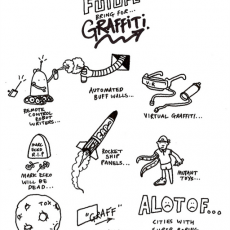 FUTURE
BRING FOR...
GRAFFITI.
REMOTE
CONTROL
ROBOT
WRITERS...
AUTOMATED
BUFF WALLS...
VIRTUAL GRAFFITI...
MARC
ECKO
R.I.P
MARK ECKO
WILL BE
DEAD...
ROCKET
SHIP
PANELS...
MUTANT
TOYS...
TOX
"GRAFF"
ALOTOF...
CITIES WITH
SUPER BORING